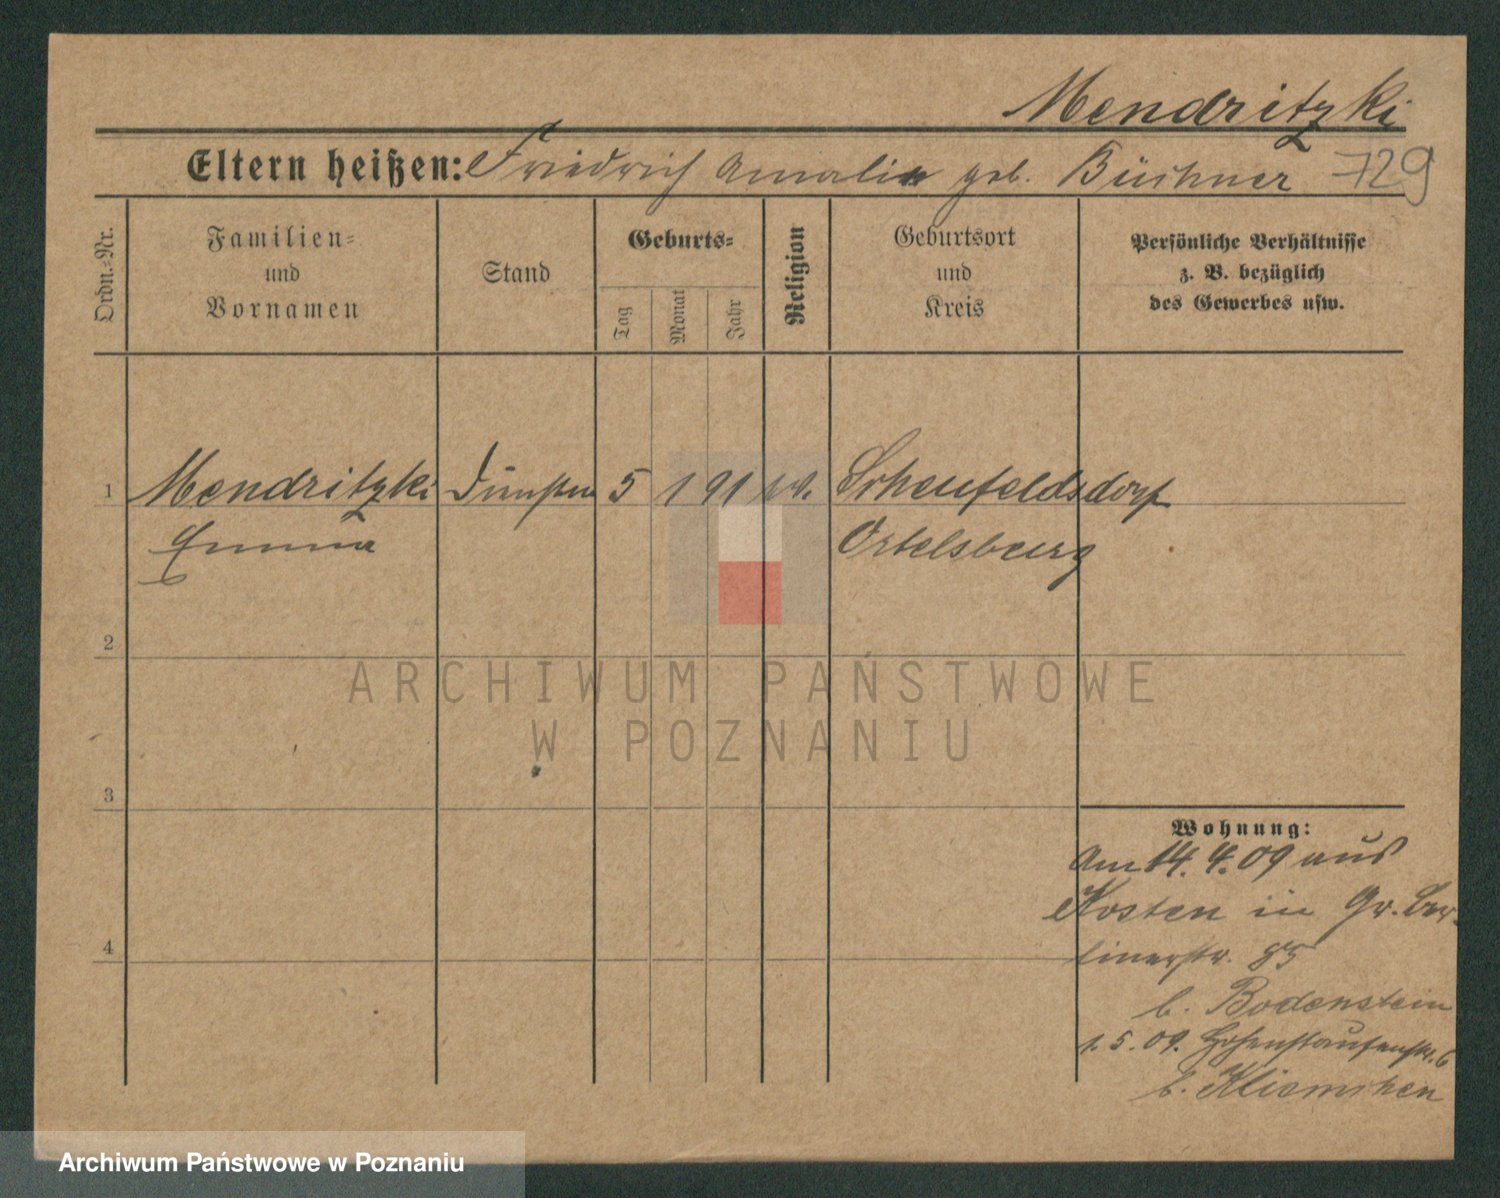 Mendritzki
Eltern heißen: Friedrich Amalie geb. Büchner 729
Ordn.-Nr.
Familien-
und
Vornamen
Stand
Geburts-
Tag
Monat
Jahr
Religion
Geburtsort
und
Kreis
Persönliche Verhältnisse
z. B. bezüglich
des Gewerbes usw.
1 Mendritzki 5 1 91 Scheufeldsdorf
Emma Ortelsburg
2
3
4
ARCHIWUM PAŃSTWOWE
W POZNANIU
Wohnung:
Am 14. 4. 09 aus
Kosten in Gr. Ber-
linerstr. 85
b. Bodenstein
1. 5. 09. Hohenstaufenstr. 6
b. Kliemchen
Archiwum Państwowe w Poznaniu